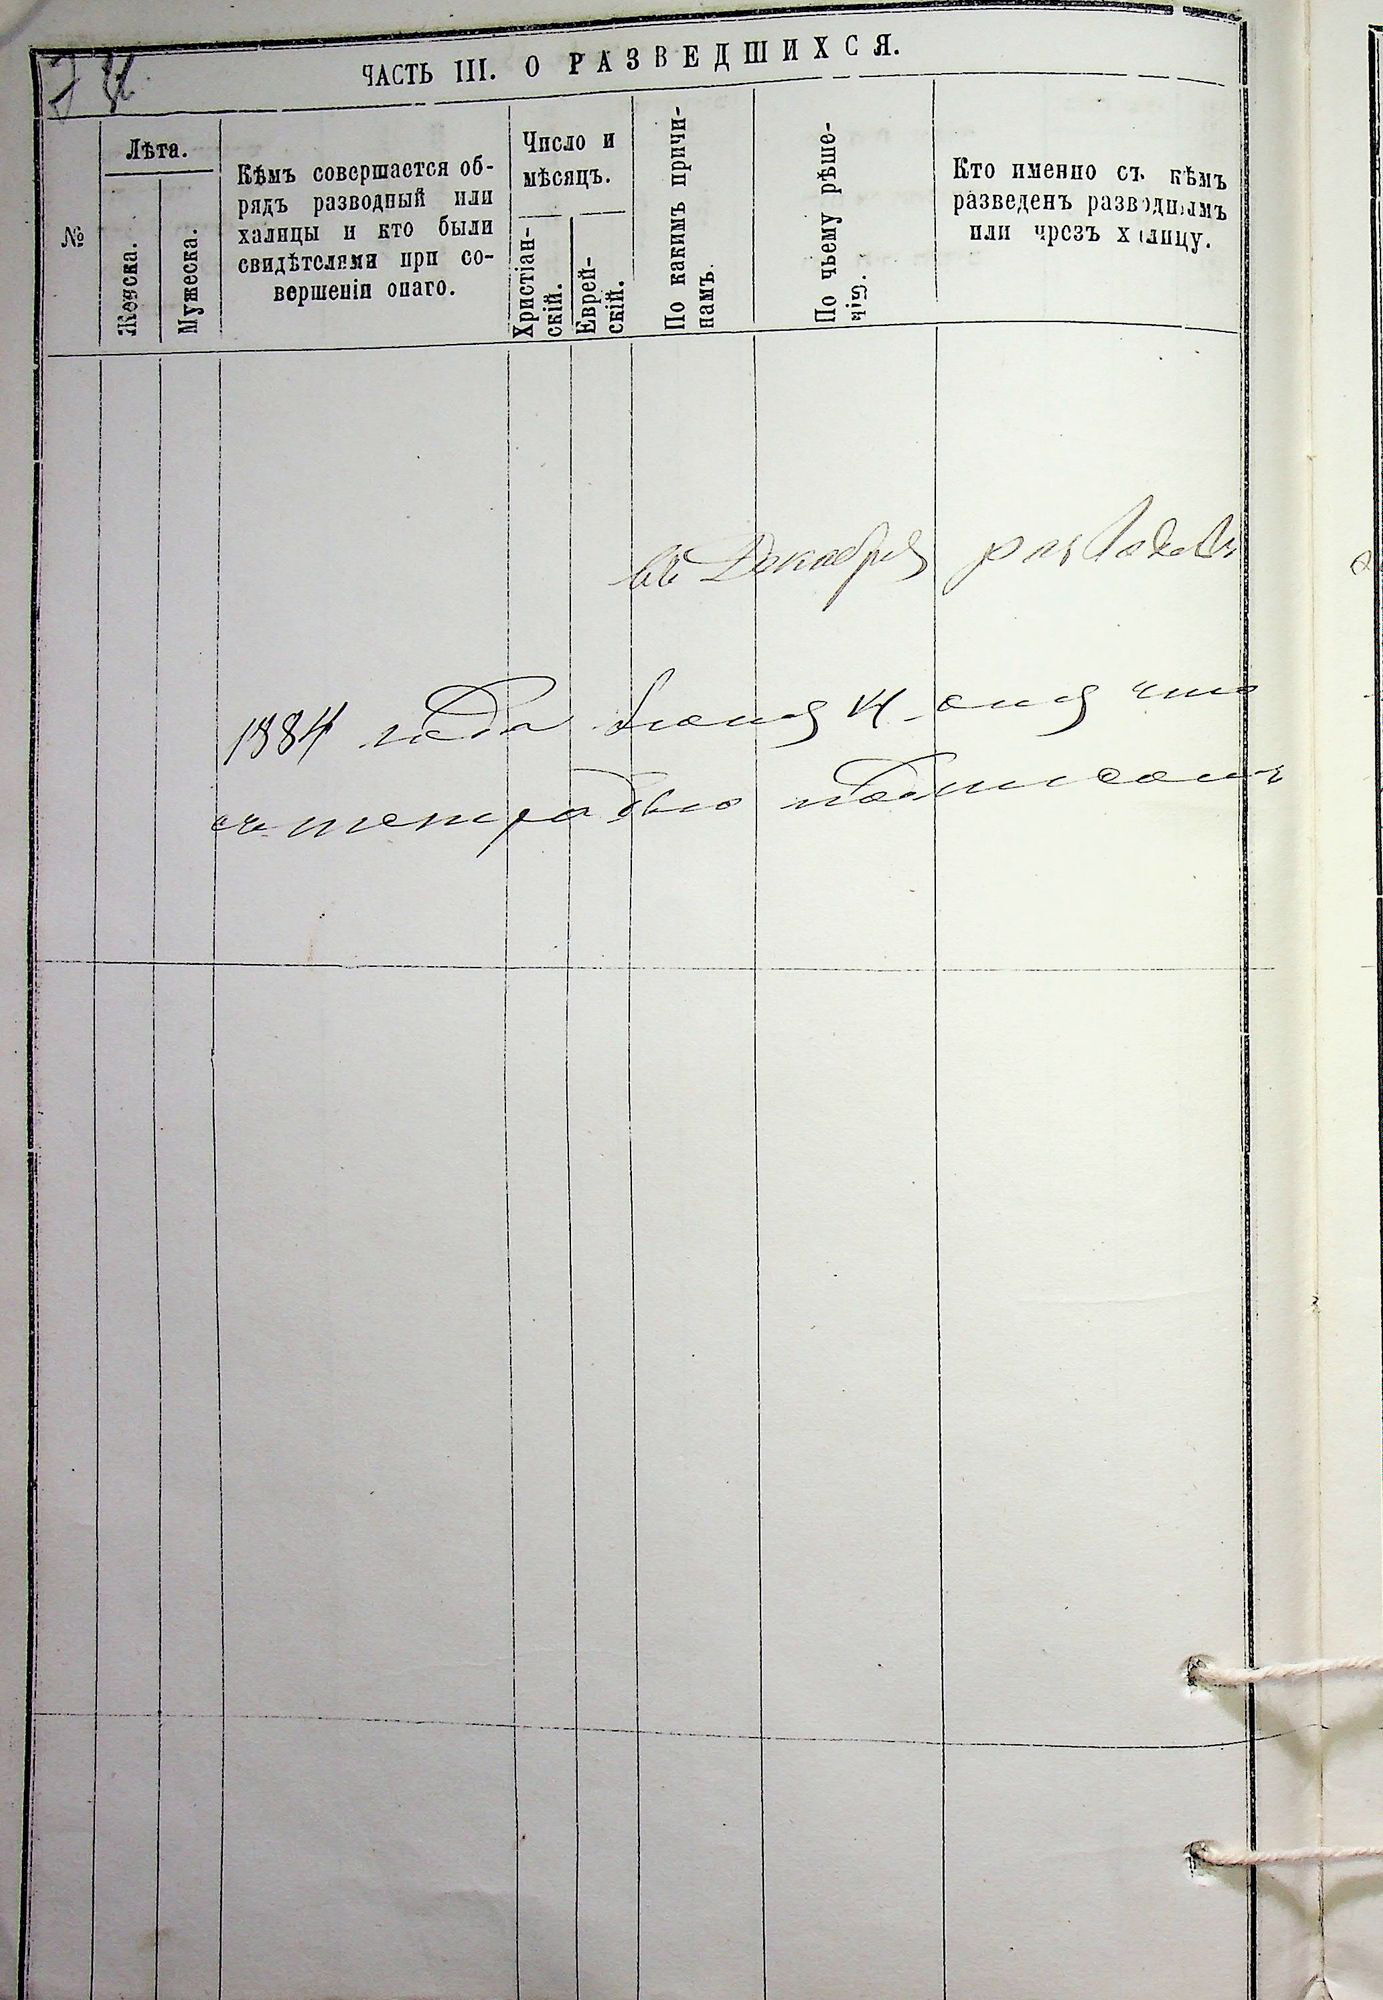 ЧАСТЬ III. О РАЗВЕДШИХСЯ.
№
Лѣта.
Женска.
Мужеска.
Кѣмъ совершается об-
рядъ разводный или
халицы и кто были
свидѣтелями при со-
вершеніи онаго.
Число и
мѣсяцъ.
Христіан-
скій.
Еврей-
скій.
По какимъ причи-
намъ.
По чьему рѣше-
нію.
Кто именно съ кѣмъ
разведенъ разводнымъ
или чрезъ халицу.
въ Декабря
1884 года 14 дня что
съ тетрадью